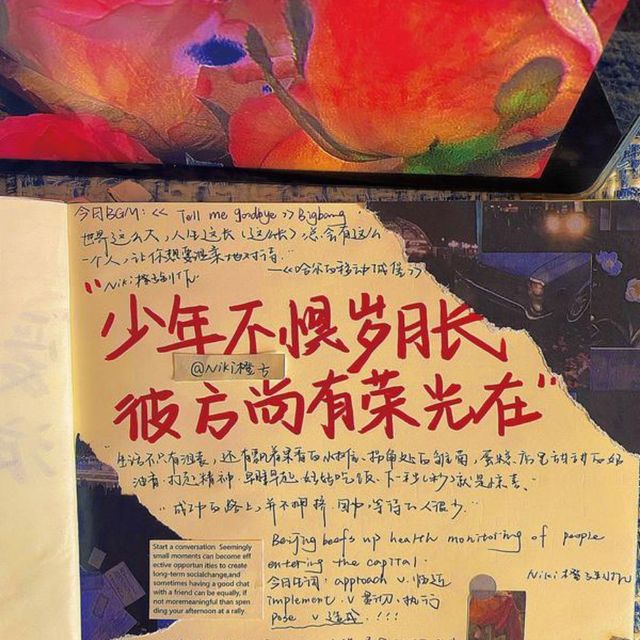 今日BGM:<< Tell me goodbye >> Bigbang
世界这么大,人生这长(这么长)总会有这么
一个人,让你想要温柔地对待。
—《哈尔的移动城堡》
"Niki橙制作
"少年不惧岁月长
@Niki橙古
彼方尚有荣光在"
"生活不只有沮丧,还有飘着果香的小树,拐角处的,蛋糕店里甜甜的奶
油香,打起精神,早睡早起,好好吃饭、下一秒就是惊喜。"
"成功的路上,并不拥挤,因为等待的人很少。"
Beijing beefs up health monitoring of people
entering the capital.
今日生词:approach v. 临近
Niki橙制作
implement v 贯彻、执行
pose v 造成 . ! ! !
Start a conversation Seemingly
small moments can become eff
ective opportunities to create
long-term socialchange,and
sometimes having a good chat
with a friend can be equally, if
not moremeaningful than spen
ding your afternoon at a rally.